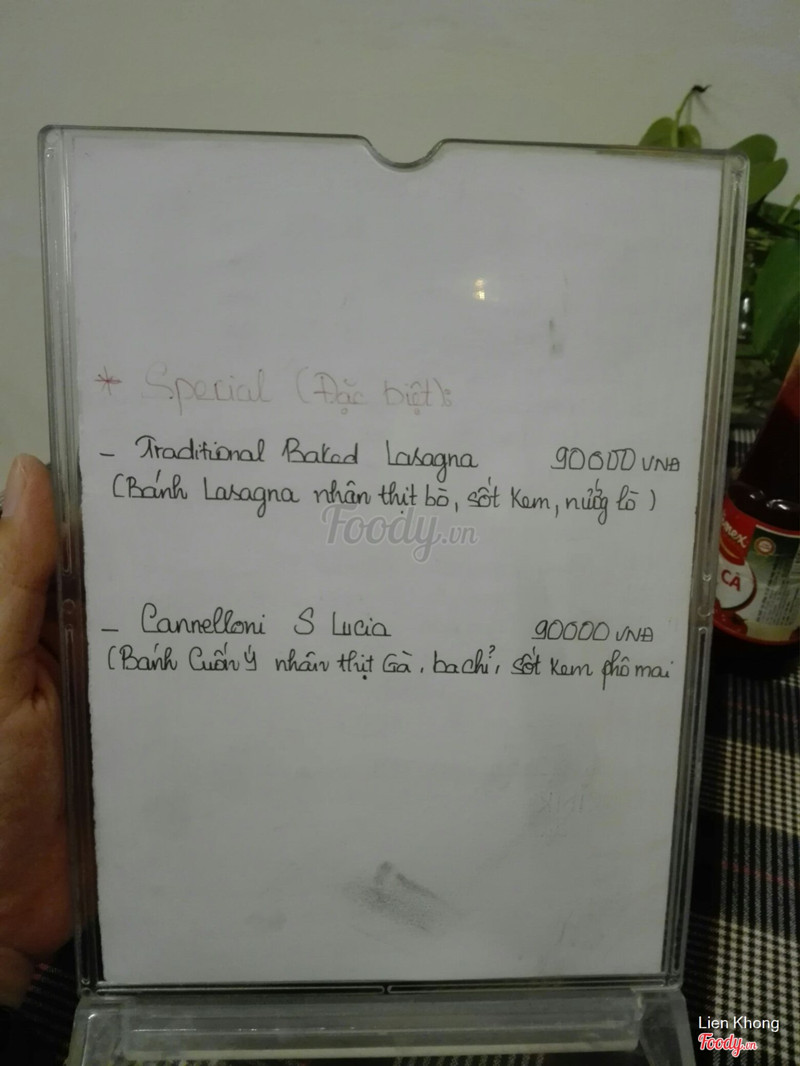 * Special (Đặc biệt):
- Traditional Baked Lasagna 90000 VNĐ
(Bánh Lasagna nhân thịt bò, sốt Kem, nướng lò)
Foody.vn
- Cannelloni S Lucia 90000 VNĐ
(Bánh Cuốn Ý nhân thịt Gà, ba chỉ, sốt Kem phô mai
CÀ
Lien Khong
Foody.vn